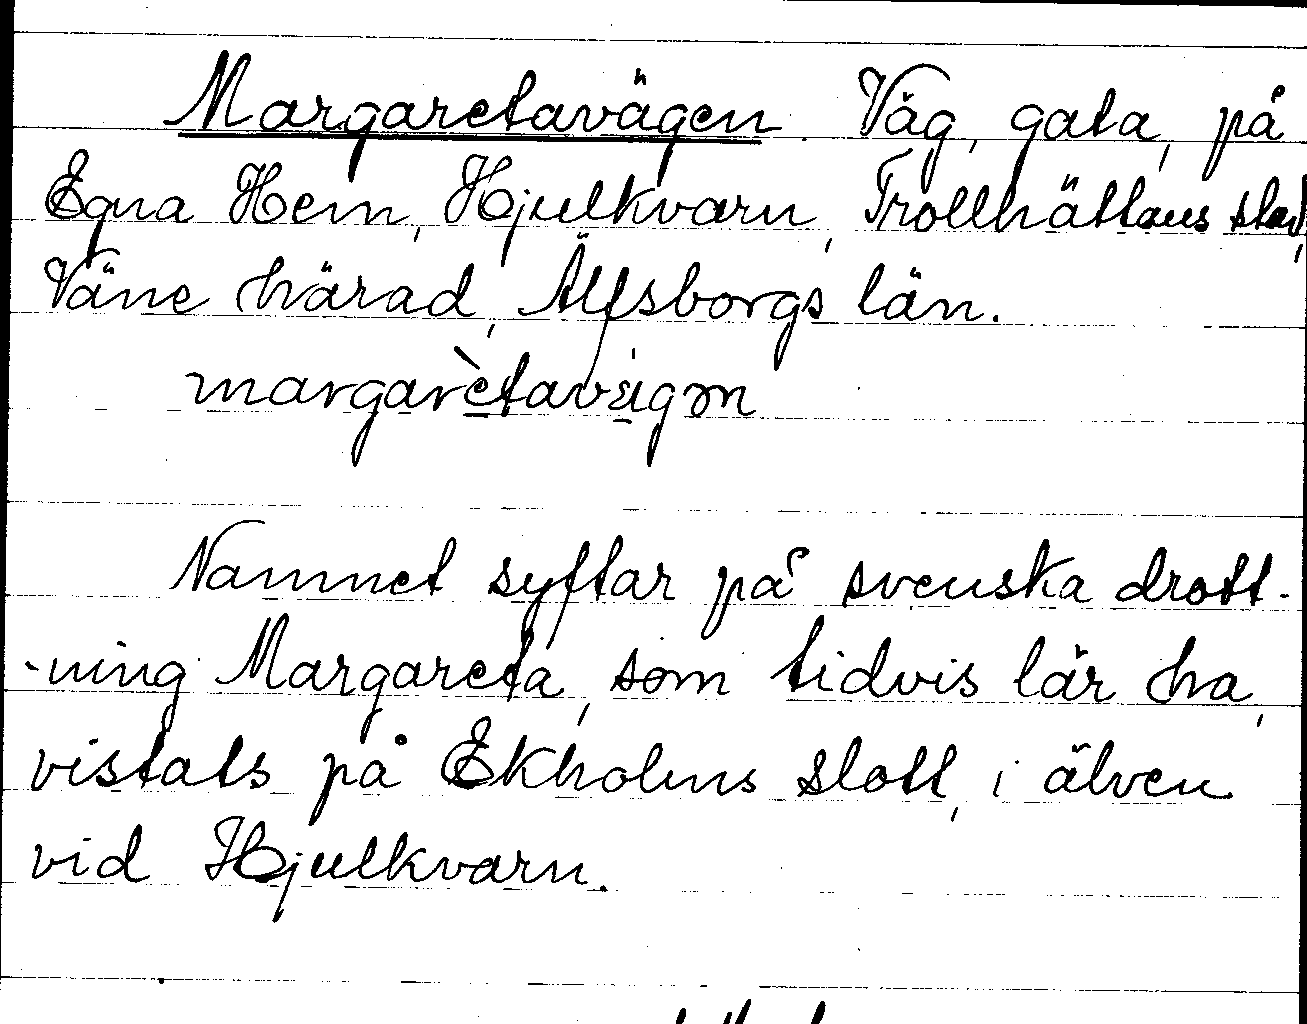 Margaretavägen. Väg, gata, på
Egna Hem, Hjulkvarn, Trollhättans stad,
Väne härad, Älfsborgs län.
margarètavägen
Namnet syftar på svenska drott-
-ning Margareta, som tidvis lär ha,
vistats på Ekholms slott, i älven
vid Hjulkvarn.